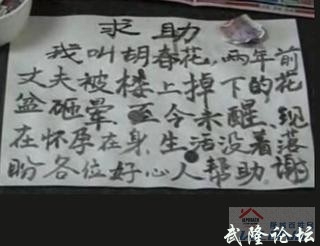 求助
我叫胡春花,两年前
丈夫被楼上掉下的花
盆砸晕至今未醒、现
在怀孕在身,生活没着落
盼各位好心人帮助谢
武隆论坛